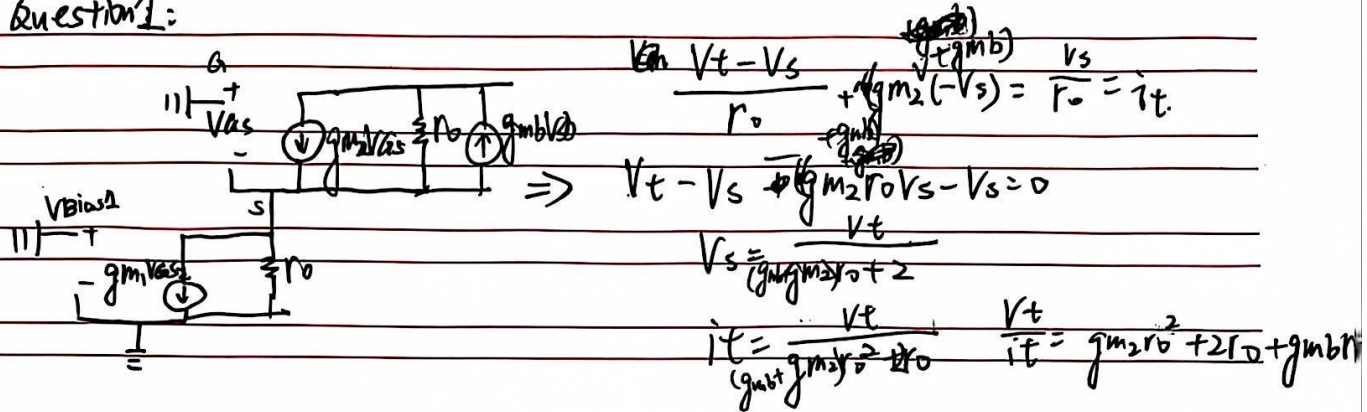 Question 1:
G
+
VGS
-
gm2VGS
r0
gmbVsb
S
VBias1
+
-
gm1VGS
r0
Vt - Vs / r0 + (gm2 + gmb)(-Vs) = Vs / r0 = it.
=> Vt - Vs - (gm2 + gmb) r0 Vs - Vs = 0
Vs = Vt / (gmb+gm2)r0 + 2
it = Vt / (gmb + gm2)r0² + 2r0
Vt / it = gm2r0² + 2r0 + gmbr